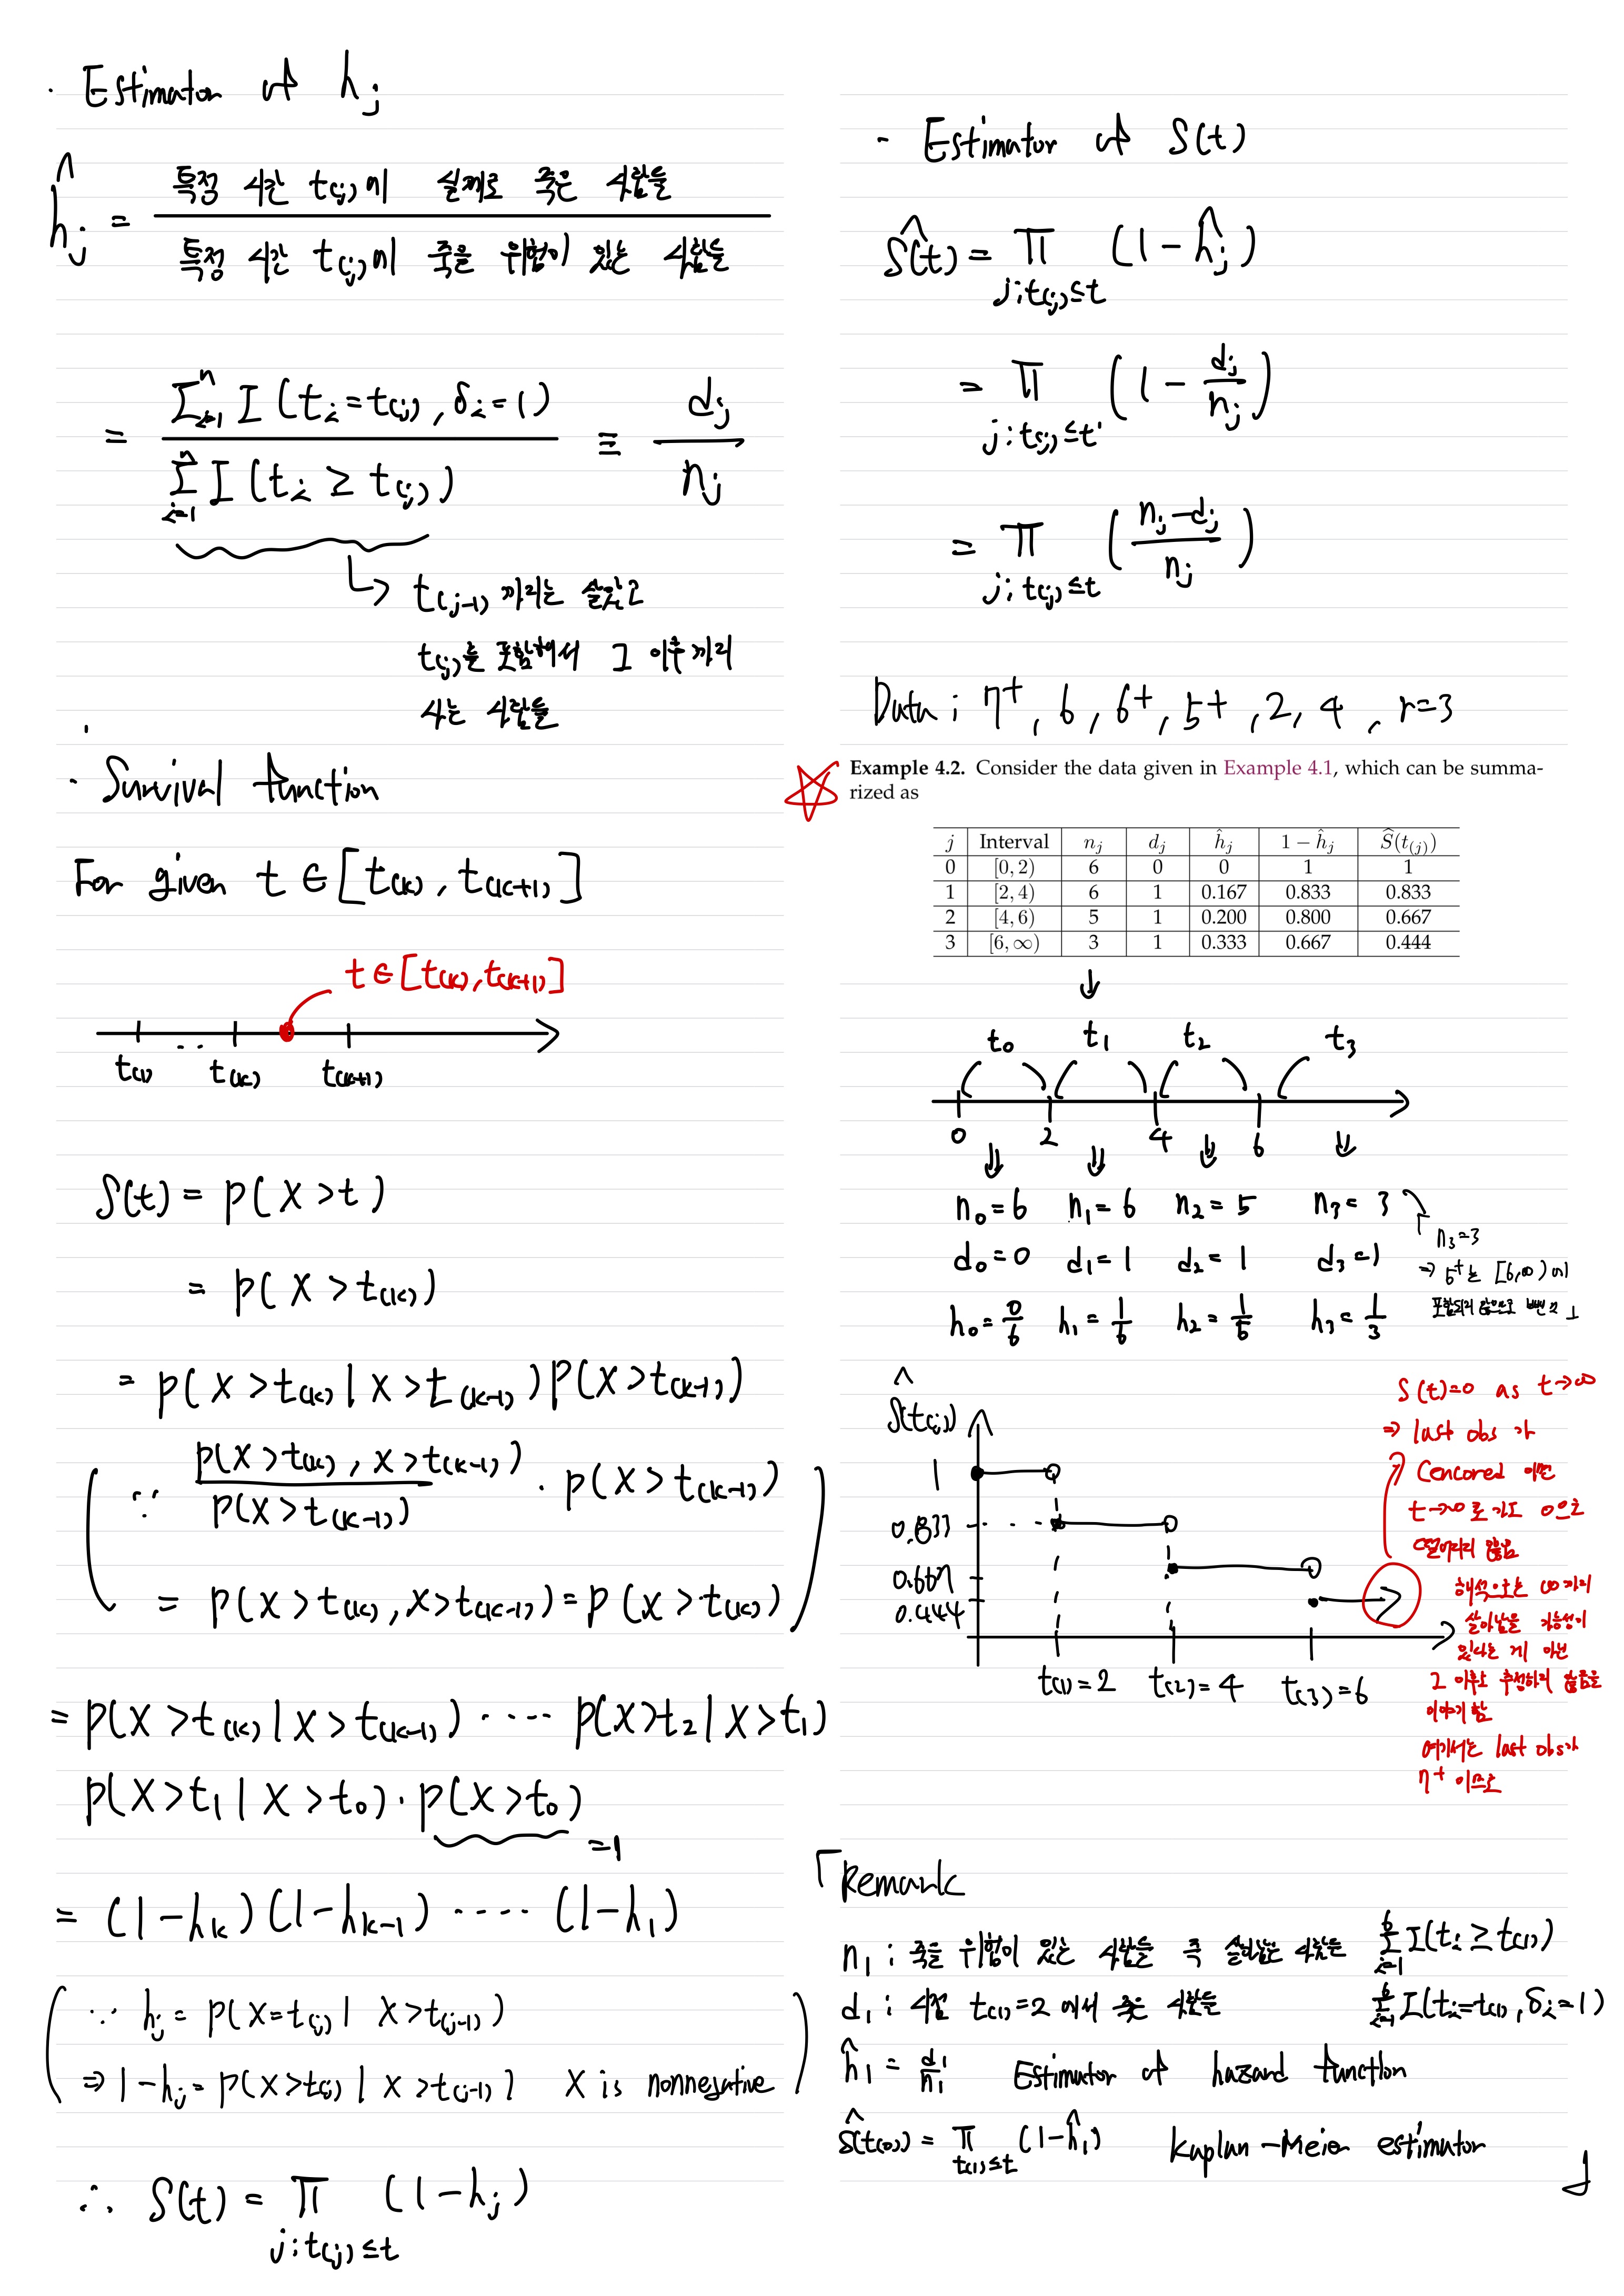 · Estimator of hⱼ
ĥⱼ = 특정 시간 t(j)에 실제로 죽은 사람들 / 특정 시간 t(j)에 죽을 위험이 있는 사람들
= Σⁿᵢ₌₁ I (tᵢ = t(j), δᵢ = 1) / Σⁿᵢ₌₁ I (tᵢ ≥ t(j)) ≡ dⱼ / nⱼ
↳ t(j-1) 까지는 살았고
t(j)를 포함해서 그 이후까지
사는 사람들
· Survival function
For given t ∈ [t(k), t(k+1)]
t ∈ [t(k), t(k+1)]
t(1) ·· t(k) t(k+1)
S(t) = P( X > t )
= P( X > t(k) )
= P( X > t(k) | X > t(k-1) ) P(X > t(k-1))
( ∵ P(X > t(k), X > t(k-1)) / P(X > t(k-1)) · P(X > t(k-1))
= P(X > t(k), X > t(k-1)) = P(X > t(k)) )
= P(X > t(k) | X > t(k-1)) ···· P(X > t₂ | X > t₁)
P(X > t₁ | X > t₀) · P(X > t₀)
= 1
= (1 - hk) (1 - hk-1) ···· (1 - h₁)
( ∵ hⱼ = P(X = t(j) | X > t(j-1))
⇒ 1 - hⱼ = P(X > t(j) | X > t(j-1)] X is nonnegative )
∴ S(t) = π j : t(j) ≤ t (1 - hⱼ)
- Estimator of S(t)
Ŝ(t) = π j : t(j) ≤ t (1 - ĥⱼ)
= π j : t(j) ≤ t (1 - dⱼ / nⱼ)
= π j : t(j) ≤ t (nⱼ - dⱼ / nⱼ)
Data ; 7⁺, 6, 6⁺, 5⁺, 2, 4, r=3
Example 4.2. Consider the data given in Example 4.1, which can be summa-
rized as
j Interval nⱼ dⱼ ĥⱼ 1 − ĥⱼ Ŝ(t(j))
0 [0, 2) 6 0 0 1 1
1 [2, 4) 6 1 0.167 0.833 0.833
2 [4, 6) 5 1 0.200 0.800 0.667
3 [6, ∞) 3 1 0.333 0.667 0.444
t₀ t₁ t₂ t₃
0 2 4 6
n₀ = 6 n₁ = 6 n₂ = 5 n₃ = 3
d₀ = 0 d₁ = 1 d₂ = 1 d₃ = 1
h₀ = 0/6 h₁ = 1/6 h₂ = 1/5 h₃ = 1/3
「 n₃ = 3
⇒ 5⁺는 [6,∞)에
포함되지 않으므로 」
Ŝ(t(j))
1
0.833
0.667
0.444
t(1) = 2 t(2) = 4 t(3) = 6
S(t)=0 as t→∞
⇒ last obs 가
Cencored 이면
t→∞로 가도 0으로
떨어지지 않음
해석으로는 ∞까지
살아남을 가능성이
있다는 게 아닌
그 이후로 추정하지 않음을
이야기 함
여기서는 last obs가
7⁺ 이므로
「Remark
n₁ : 죽을 위험이 있는 사람들 즉 살아있는 사람들 Σ⁶ᵢ₌₁ I(tᵢ ≥ t(1))
d₁ : 시점 t(1) = 2 에서 죽은 사람들 Σ⁶ᵢ₌₁ I(tᵢ = t(1), δᵢ = 1)
ĥ₁ = d₁/n₁ Estimator of hazard function
Ŝ(t(0)) = π t(1) ≤ t (1 - ĥ₁) Kaplan - Meier estimator 」